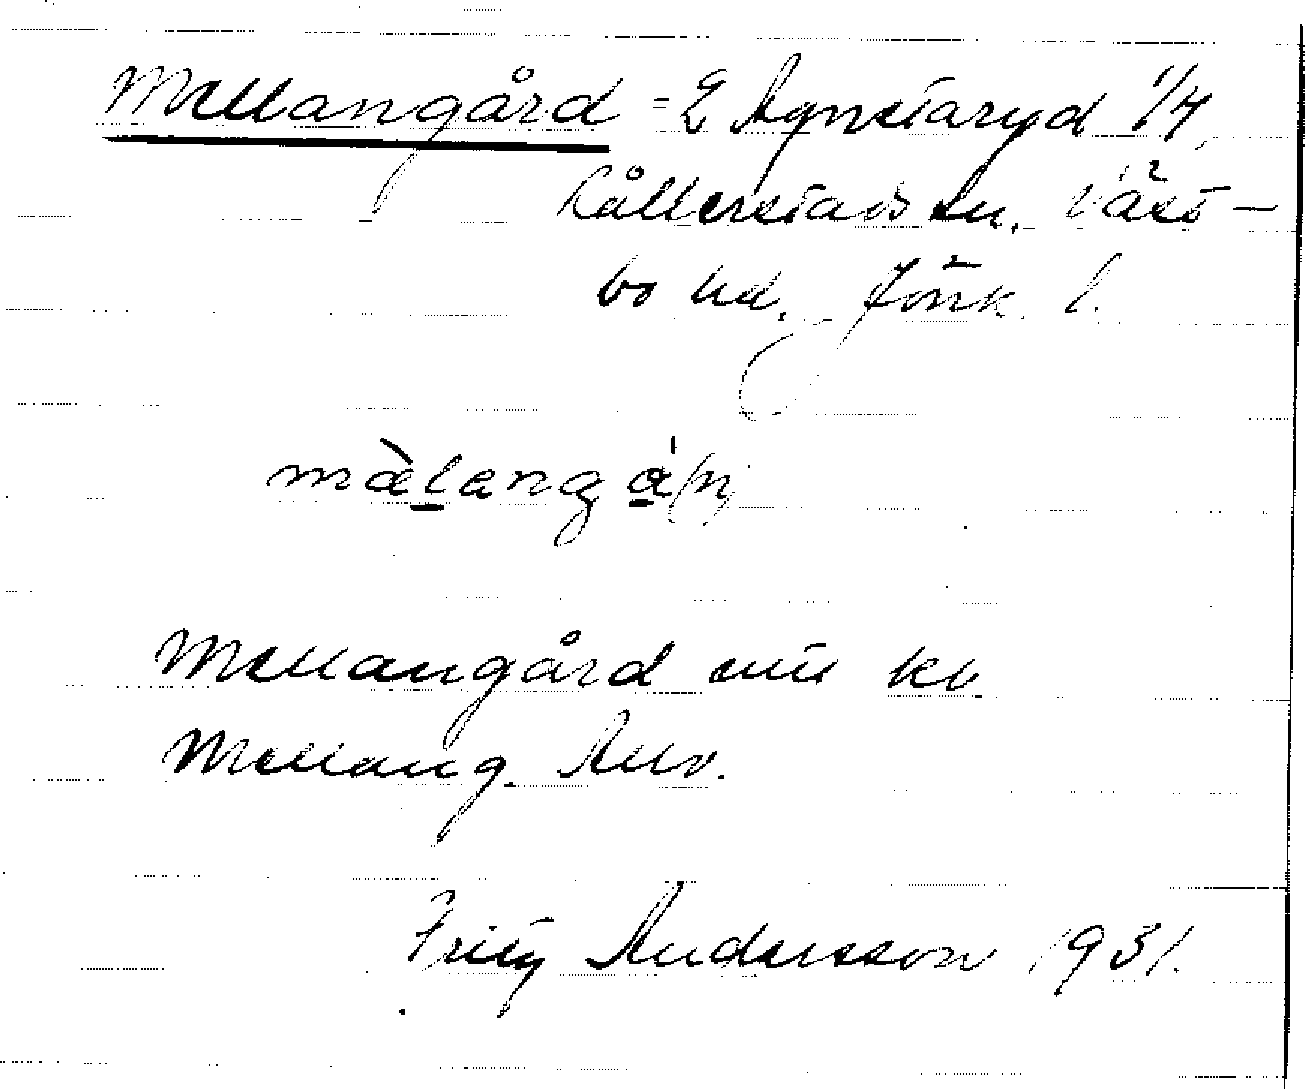 Mellangård = E Agnetaryd 1/4
Kållerstads sn. Väst-
bo hd. Jönk. l.
mälangå(n)
Mellangård
Mellang.
Fritz Andersson 1931.